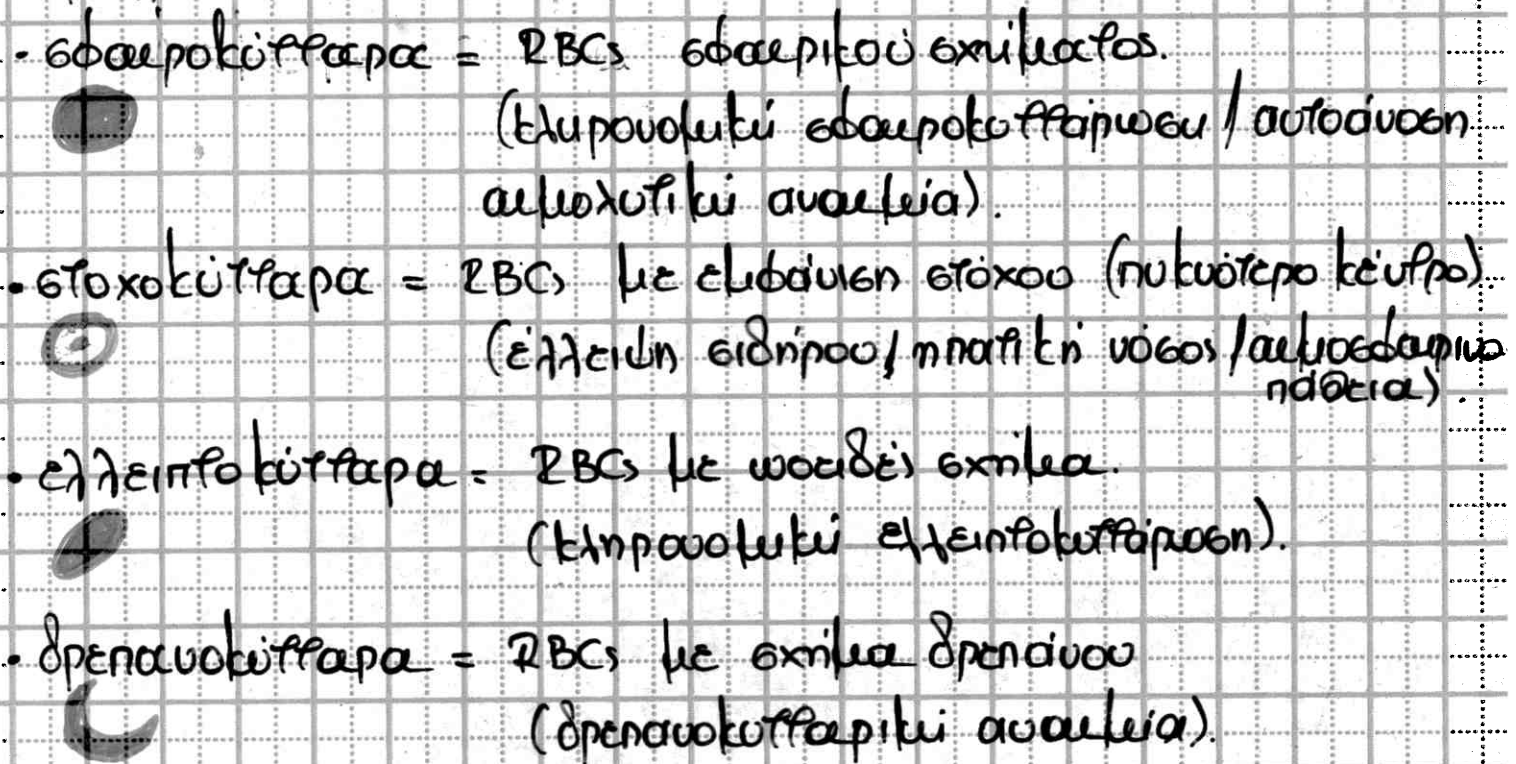 · σφαιροκύτταρα = RBCs σφαιρικού σχήματος.
(κληρονομική σφαιροκυττάρωση / αυτοάνοση
αιμολυτική αναιμία).
· στοχοκύτταρα = RBCs με εμφάνιση στόχου (πυκνότερο κέντρο).
(έλλειψη σιδήρου / ηπατική νόσος / αιμοσφαιρινο
πάθεια).
· ελλειπτοκύτταρα = RBCs με ωοειδές σχήμα.
(κληρονομική ελλειπτοκυττάρωση).
· δρεπανοκύτταρα = RBCs με σχήμα δρεπάνου
(δρεπανοκυτταρική αναιμία).